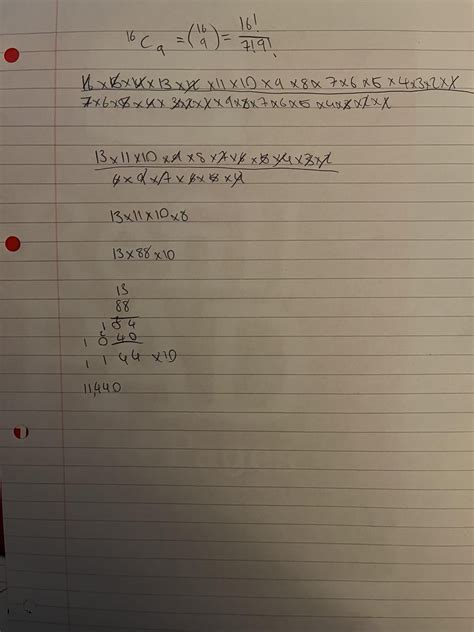 ¹⁶C₉ = (16 9) = 16! / 7!9!
16 × 15 × 14 × 13 × 12 × 11 × 10 × 9 × 8 × 7 × 6 × 5 × 4 × 3 × 2 × 1
7 × 6 × 5 × 4 × 3 × 2 × 1 × 9 × 8 × 7 × 6 × 5 × 4 × 3 × 2 × 1
13 × 11 × 10 × 9 × 8 × 7 × 6 × 5 × 4 × 3 × 2
13 × 11 × 10 × 8
13 × 88 × 10
13
88
1 0 4
1 0 40
1 1 44 × 10
11,440